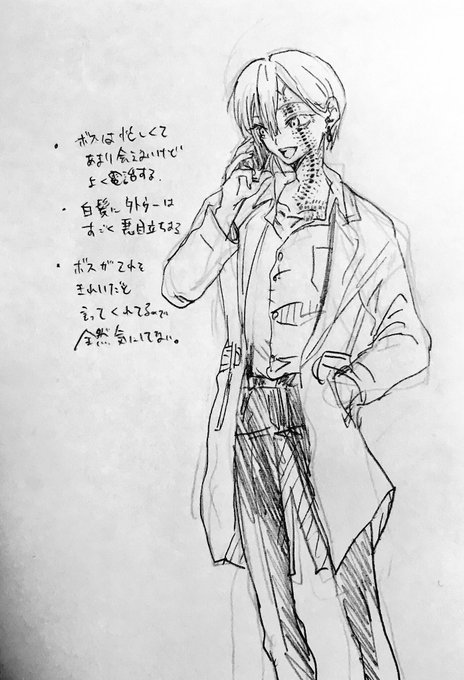 ・ボスは忙しくて
あまり会えないけど
よく電話する.
・白髪にタトゥーは
すごく悪目立ちする
・ボスがてれも
きれいだと
言ってくれてるので
全然気にしてない。